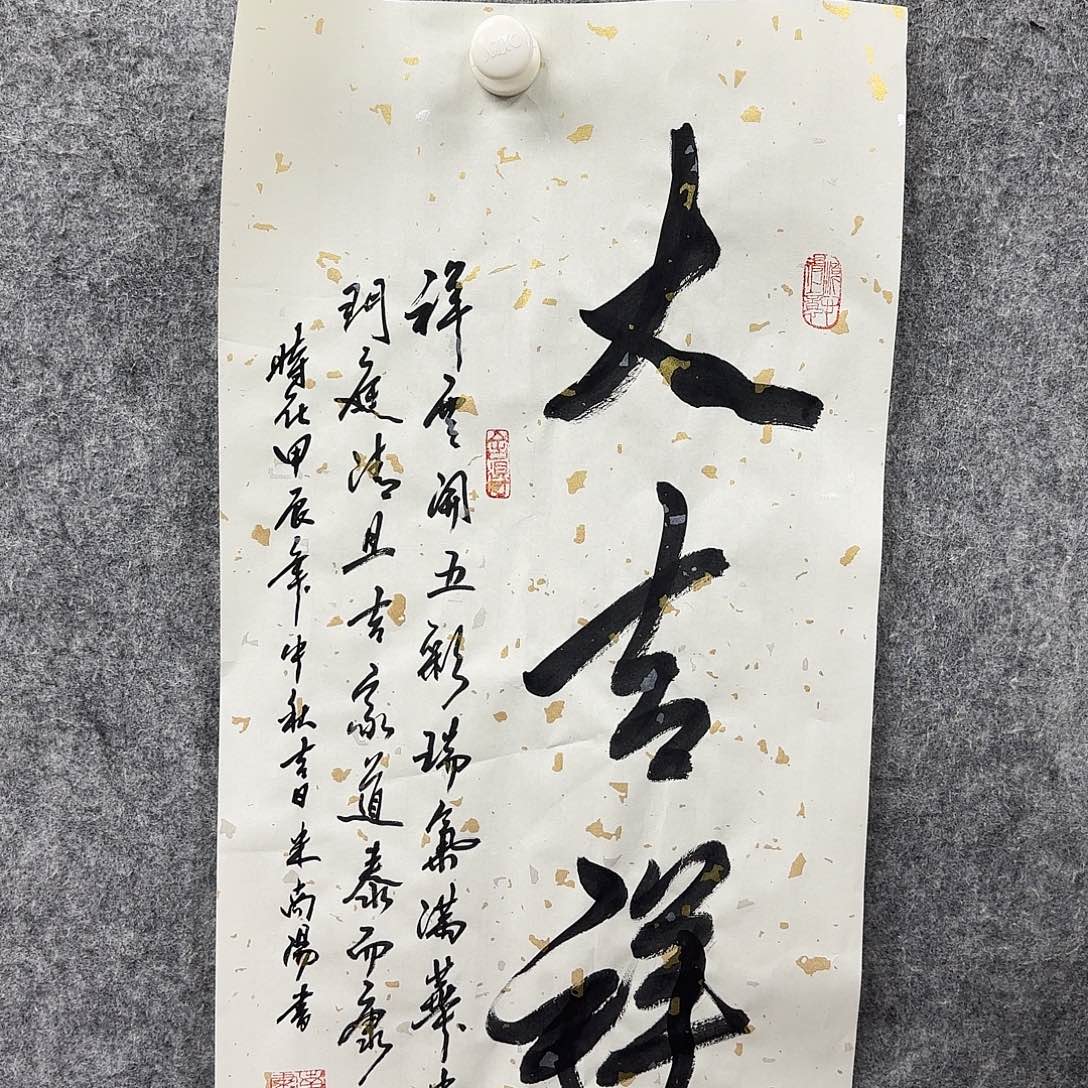 大吉祥
祥雲開五彩瑞氣滿華
門庭清且吉家道泰而康
時在甲辰年中秋吉日米南陽書